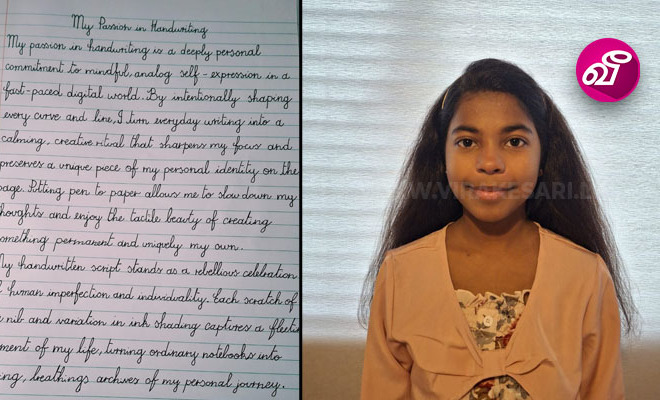 My Passion in Handwriting
My passion in handwriting is a deeply personal
commitment to mindful, analog self-expression in a
fast-paced digital world. By intentionally shaping
every curve and line, I turn everyday writing into a
calming, creative ritual that sharpens my focus and
preserves a unique piece of my personal identity on the
page. Putting pen to paper allows me to slow down my
thoughts and enjoy the tactile beauty of creating
something permanent and uniquely my own.
My handwritten script stands as a rebellious celebration
human imperfection and individuality. Each scratch of
nib and variation in ink shading captures a
ment of my life, turning ordinary notebooks into
ing, breathings archives of my personal journey.
வீ